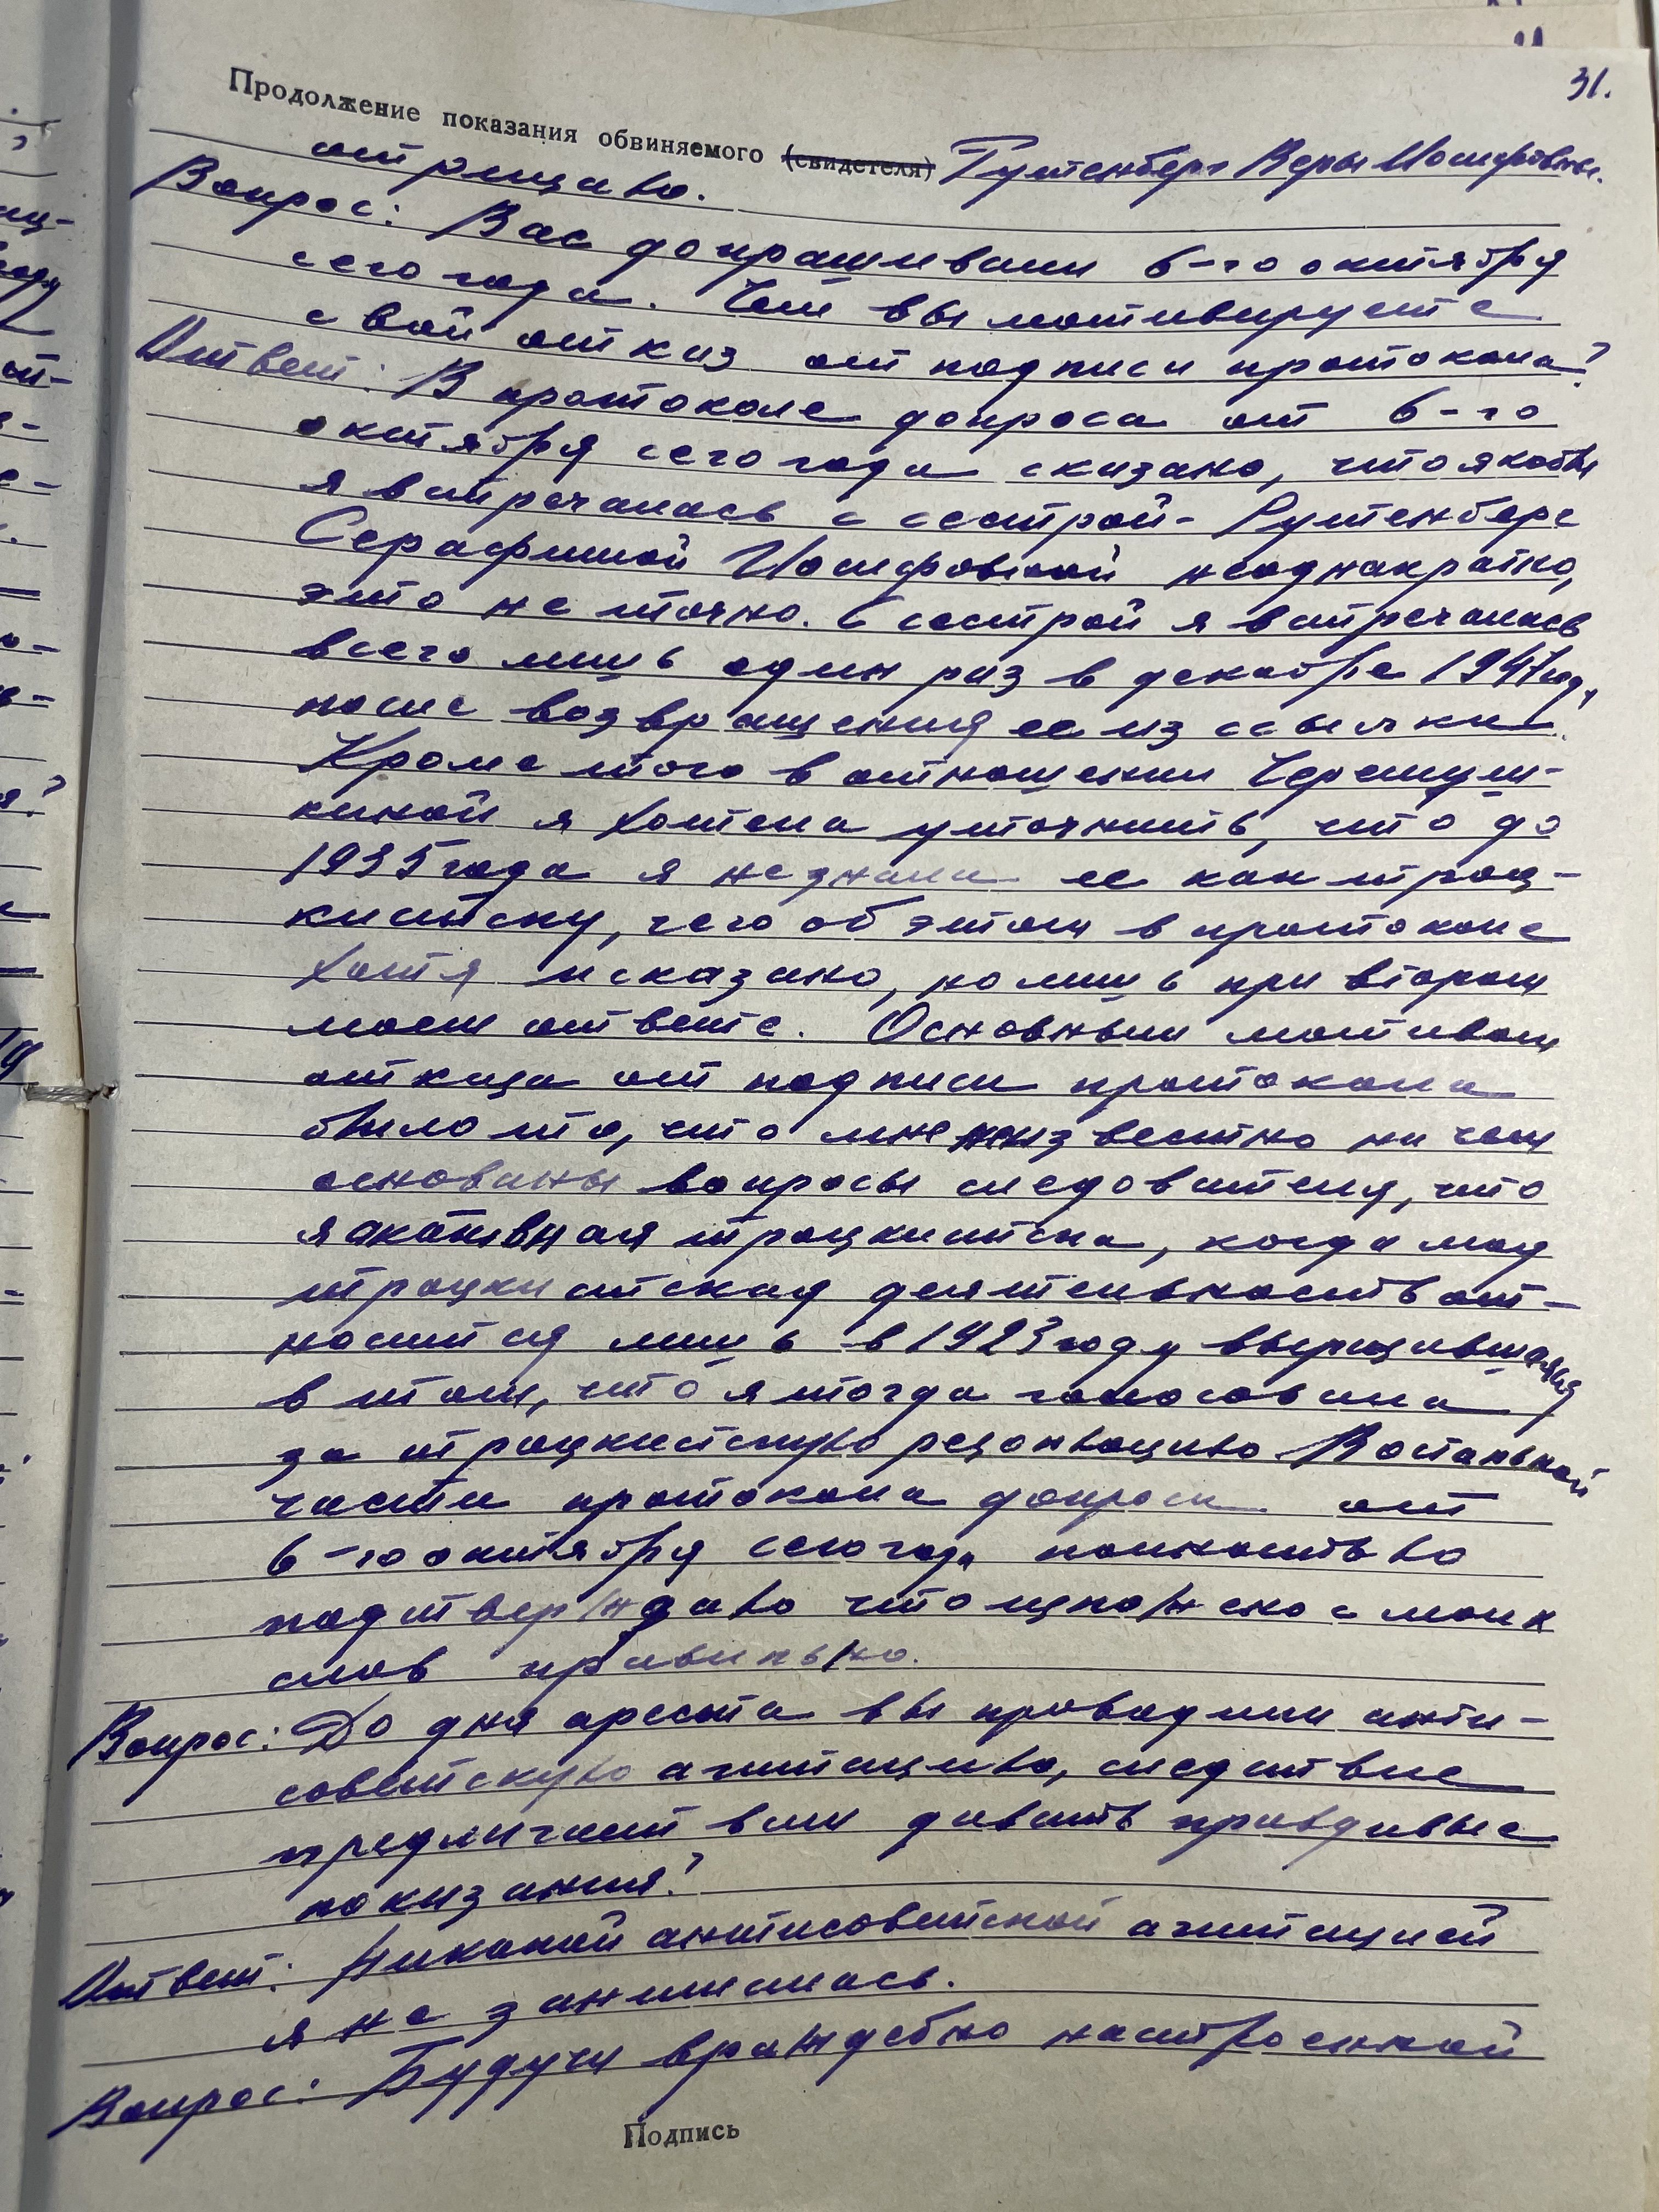 31.
Продолжение показания обвиняемого (свидетеля) Рутенберг Веры Иосифовны.
отрицаю.
Вопрос: Вас допрашивали 6-го октября
сего года. Чем вы мотивируете
свой отказ от подписи протокола?
Ответ: В протоколе допроса от 6-го
октября сего года сказано, что якобы
я встречалась с сестрой - Рутенберг
Серафимой Иосифовной неоднократно,
это не точно. С сестрой я встречалась
всего лишь один раз в декабре 1947 году,
после возвращения ее из ссылки.
Кроме того в отношении Черемуш-
киной я хотела уточнить, что до
1935 года я не знала ее как троц-
кистску, чего об этом в протоколе
хотя и сказано, но лишь при втором
моем ответе. Основным мотивом
отказа от подписи протокола
было то, что мне неизвестно на чем
основаны вопросы следователя, что
я активная троцкистка, когда моя
троцкистская деятельность от-
носится лишь в 1923 году выразившаяся
в том, что я тогда голосовала
за троцкистскую резолюцию. В остальной
части протокола допроса от
6-го октября сего года полностью
подтверждаю что изложено с моих
слов правильно.
Вопрос: До дня ареста вы проводили анти-
советскую агитацию, следствие
предлагает вам давать правдивые
показания?
Ответ: Никакой антисоветской агитацией
я не занималась.
Вопрос: Будучи враждебно настроенной
Подпись